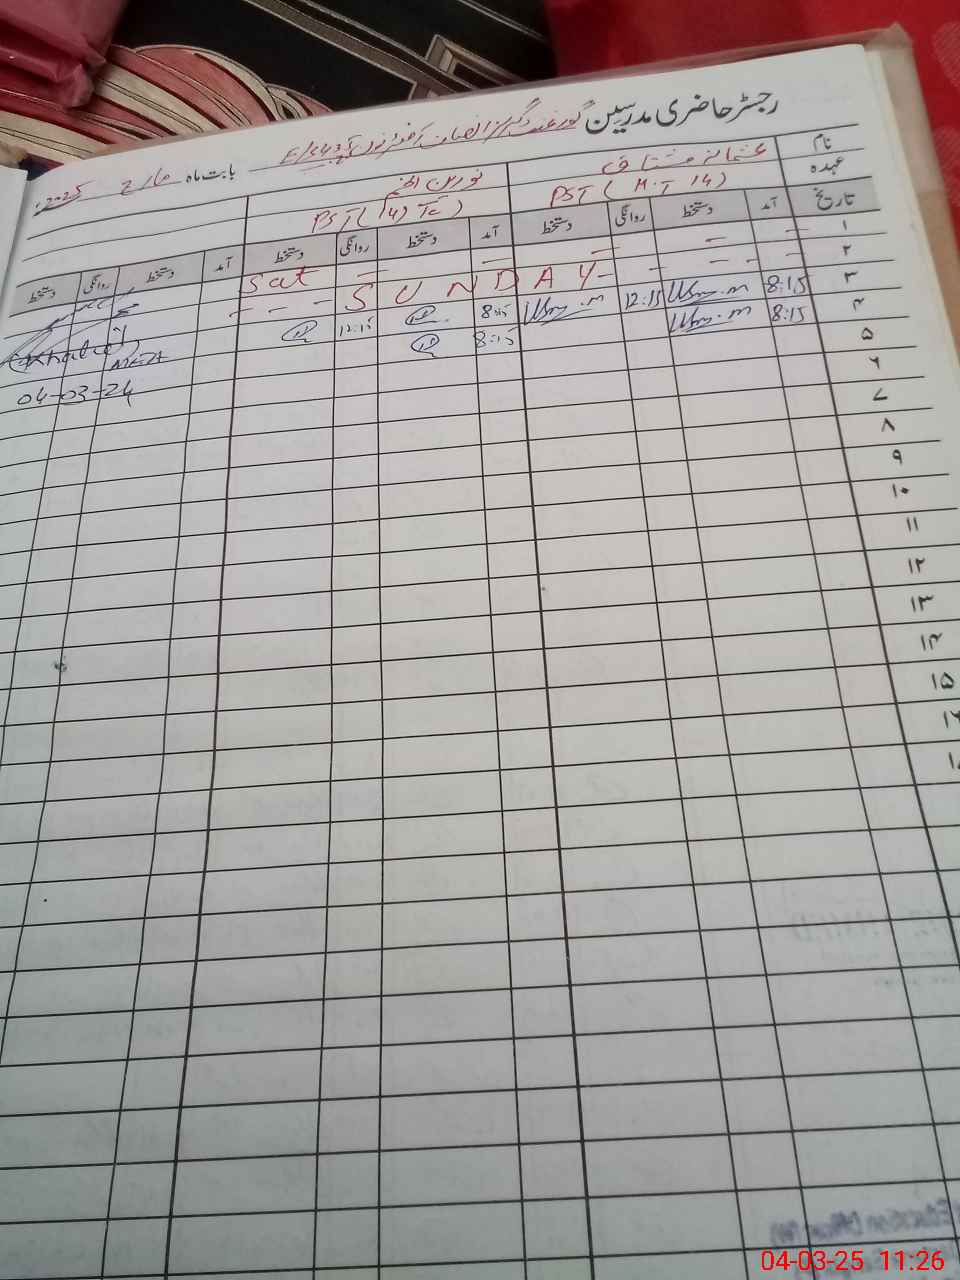 رجسٹر حاضری مدرسین گورنمنٹ گرلز
بابت ماہ مارچ 2025ء
نام عثمانہ مشتاق نورین انجم
عہدہ PST (M.T 14) PST (14) Tc
تاریخ آمد دستخط روانگی دستخط آمد دستخط روانگی دستخط آمد دستخط روانگی دستخط
۱ – – – – – – Sat
۲ – – – S U N D A Y – – –
۳ 8:15 12:15 8:15 12:15
۴ 8:15 8:15
۵
۶
۷
۸
۹
۱۰
۱۱
۱۲
۱۳
۱۴
۱۵
(Khalid)
MEA
04-03-24
Education Officer
04-03-25 11:26